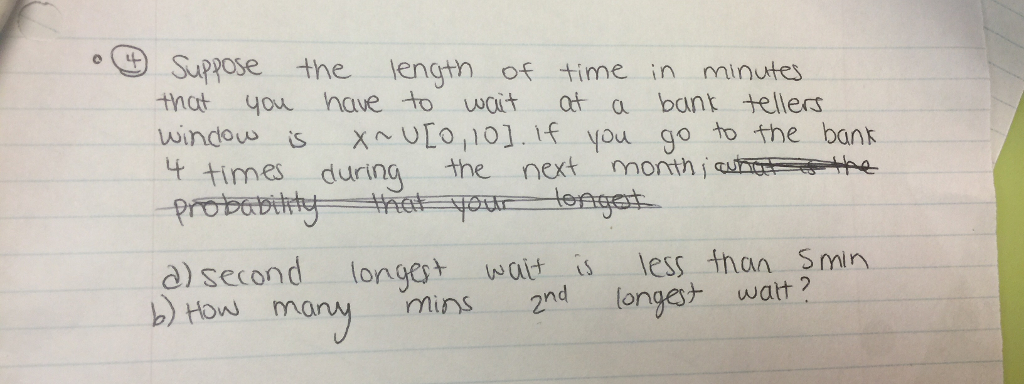 ④ Suppose the length of time in minutes
that you have to wait at a bank tellers
window is x~U[0,10]. If you go to the bank
4 times during the next month; what is the
probability that your longest
a) second longest wait is less than 5min
b) How many mins 2nd longest wait?